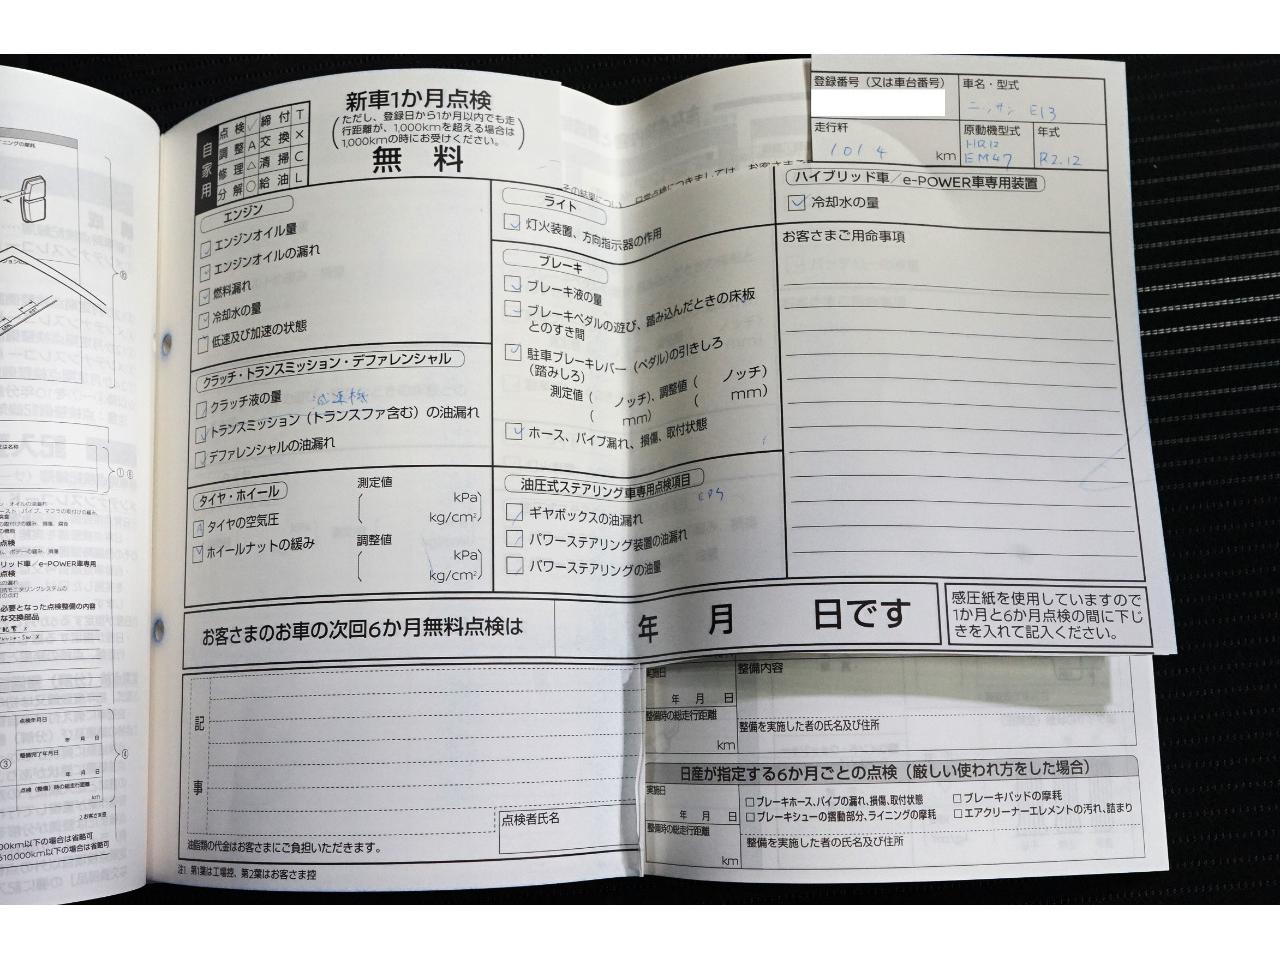 新車1か月点検
(ただし、登録日から1か月以内でも走
行距離が、1,000kmを超える場合は
1,000kmの時にお受けください。)
無 料
自家用
点検 ✓ 締付 T
調整 A 交換 ×
修理 △ 清掃 C
分解 ○ 給油 L
登録番号（又は車台番号）
車名・型式
ニッサン E13
走行粁
1014 km
原動機型式
HR12
EM47
年式
R2.12
エンジン
エンジンオイル量
エンジンオイルの漏れ
燃料漏れ
冷却水の量
低速及び加速の状態
クラッチ・トランスミッション・デファレンシャル
クラッチ液の量
トランスミッション（トランスファ含む）の油漏れ
デファレンシャルの油漏れ
タイヤ・ホイール
タイヤの空気圧
ホイールナットの緩み
測定値
kPa
kg/cm²
調整値
kPa
kg/cm²
ライト
灯火装置、方向指示器の作用
ブレーキ
ブレーキ液の量
ブレーキペダルの遊び、踏み込んだときの床板
とのすき間
駐車ブレーキレバー（ペダル）の引きしろ
（踏みしろ）
測定値（ ノッチ）、調整値（ ノッチ）
（ mm） （ mm）
ホース、パイプ漏れ、損傷、取付状態
油圧式ステアリング車専用点検項目
EPS
ギヤボックスの油漏れ
パワーステアリング装置の油漏れ
パワーステアリングの油量
ハイブリッド車／e-POWER車専用装置
冷却水の量
お客さまご用命事項
お客さまのお車の次回6か月無料点検は 年 月 日です
感圧紙を使用していますので
1か月と6か月点検の間に下じ
きを入れて記入ください。
記事
点検者氏名
油脂類の代金はお客さまにご負担いただきます。
注1. 第1葉は工場控、第2葉はお客さま控
実施日
年 月 日
整備時の総走行距離
km
整備内容
整備を実施した者の氏名及び住所
日産が指定する6か月ごとの点検（厳しい使われ方をした場合）
実施日
年 月 日
整備時の総走行距離
km
□ブレーキホース、パイプの漏れ、損傷、取付状態 □ブレーキパッドの摩耗
□ブレーキシューの摺動部分、ライニングの摩耗 □エアクリーナーエレメントの汚れ、詰まり
整備を実施した者の氏名及び住所
必要となった点検整備の内容
な交換部品
点検年月日
年 月 日
整備完了年月日
年 月 日
点検（整備）時の総走行距離
km
2.お客さま控
00km以下の場合は省略可
510,000km以下の場合は省略可